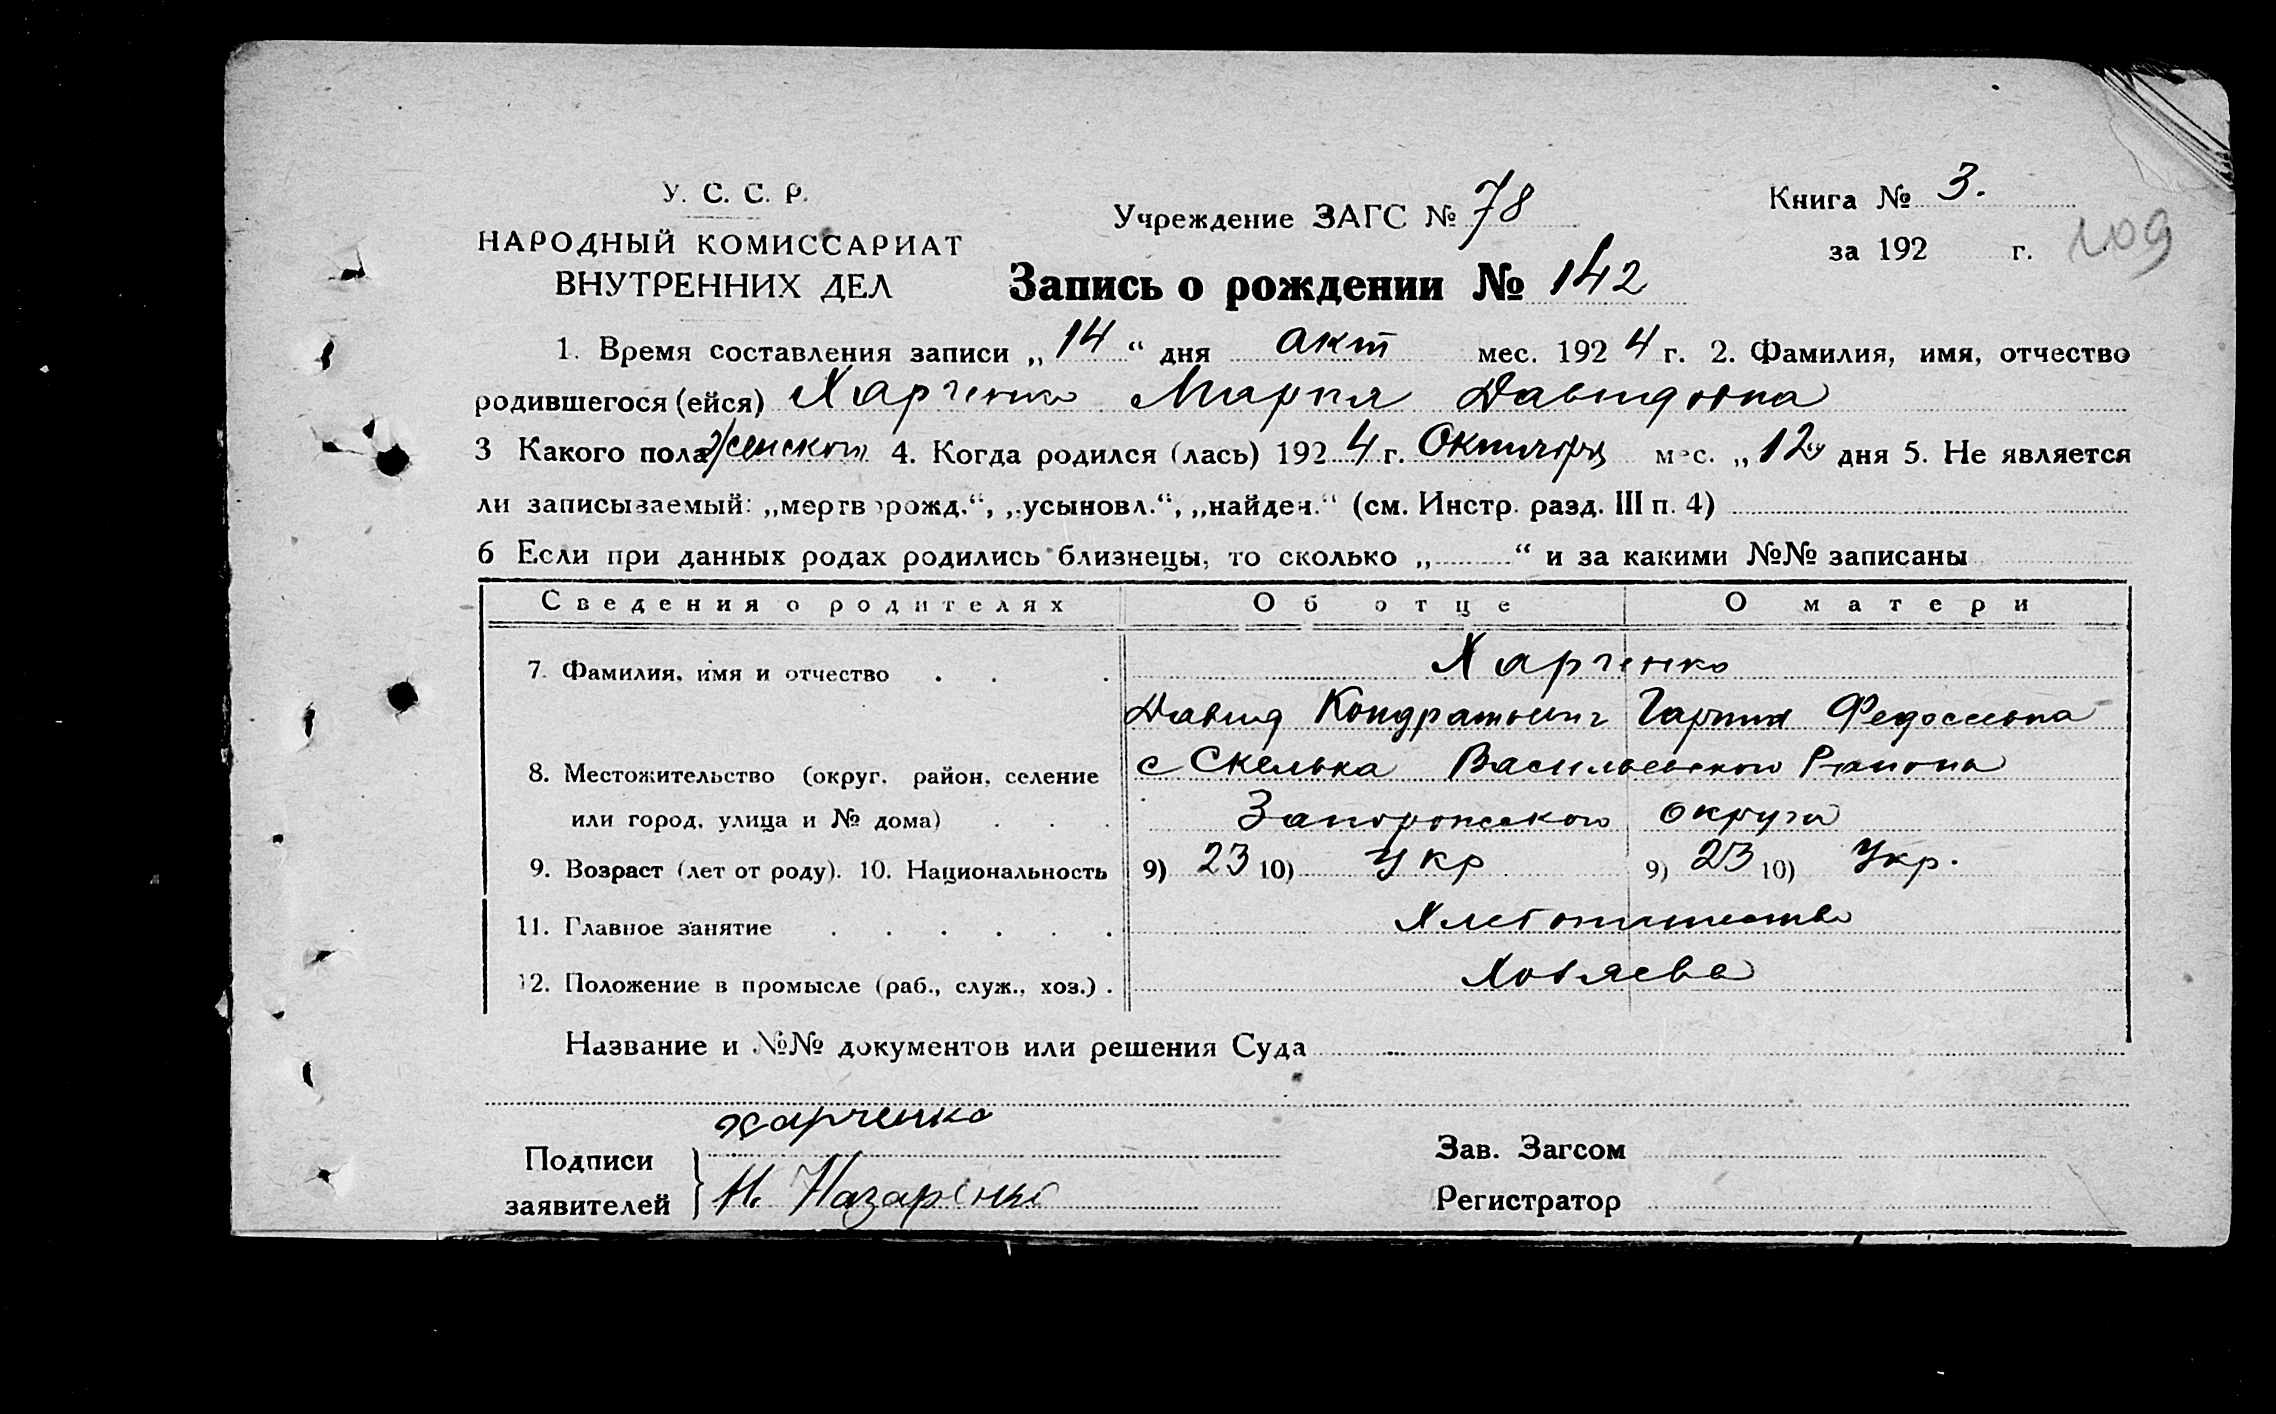 У. С. С. Р.
НАРОДНЫЙ КОМИССАРИАТ
ВНУТРЕННИХ ДЕЛ
Учреждение ЗАГС № 78
Книга № 3.
за 192 г.
109
Запись о рождении № 142
1. Время составления записи „14“ дня акт мес. 1924 г. 2. Фамилия, имя, отчество
родившегося (ейся) Харченко Мария Давидовна
3 Какого пола женского 4. Когда родился (лась) 1924 г. Октября мес. „12“ дня 5. Не является
ли записываемый: „мертворожд.“, „усыновл.“, „найден.“ (см. Инстр. разд. III п. 4)
6 Если при данных родах родились близнецы, то сколько „ “ и за какими №№ записаны
Сведения о родителях Об отце О матери
7. Фамилия, имя и отчество Харченко
Давид Кондратович Федосеевна
8. Местожительство (округ, район, селение с Скелька Васильевского Района
или город, улица и № дома) Запорожского округа
9. Возраст (лет от роду). 10. Национальность 9) 23 10) Укр 9) 23 10) Укр.
11. Главное занятие Хлебопашество
12. Положение в промысле (раб., служ., хоз.) Хозяева
Название и №№ документов или решения Суда
Подписи заявителей
Харченко
Н. Назаренко
Зав. Загсом
Регистратор